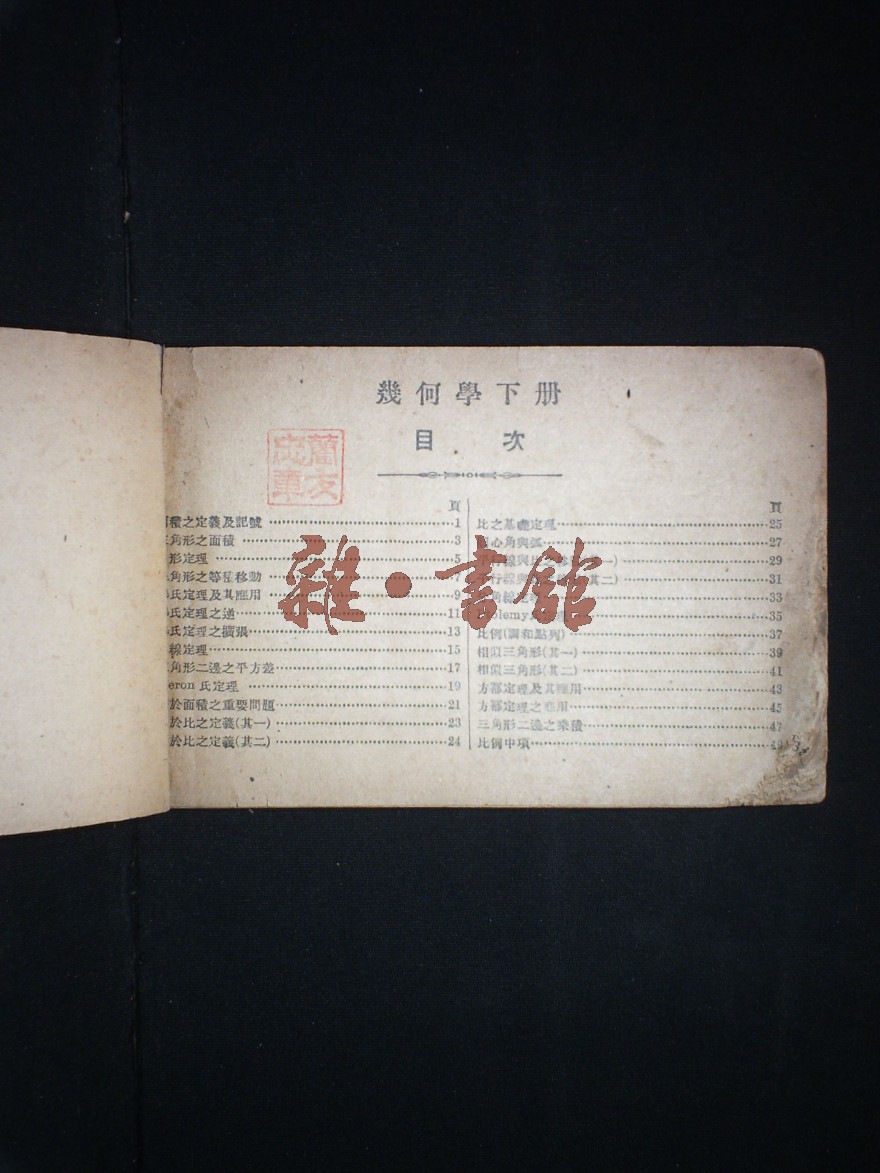 幾何學下册
目次
頁
積之定義及記號 1
角形之面積 3
形定理 5
角形之等積移動 7
氏定理及其應用 9
氏定理之逆 11
氏定理之擴張 13
線定理 15
角形二邊之平方差 17
eron 氏定理 19
於面積之重要問題 21
於比之定義(其一) 23
於比之定義(其二) 24
頁
比之基礎定理 25
心角與弧 27
29
31
33
35
比例(調和點列) 37
相似三角形(其一) 39
相似三角形(其二) 41
方冪定理及其應用 43
方冪定理之應用 45
三角形二邊之乘積 47
比例中項
雜·書館